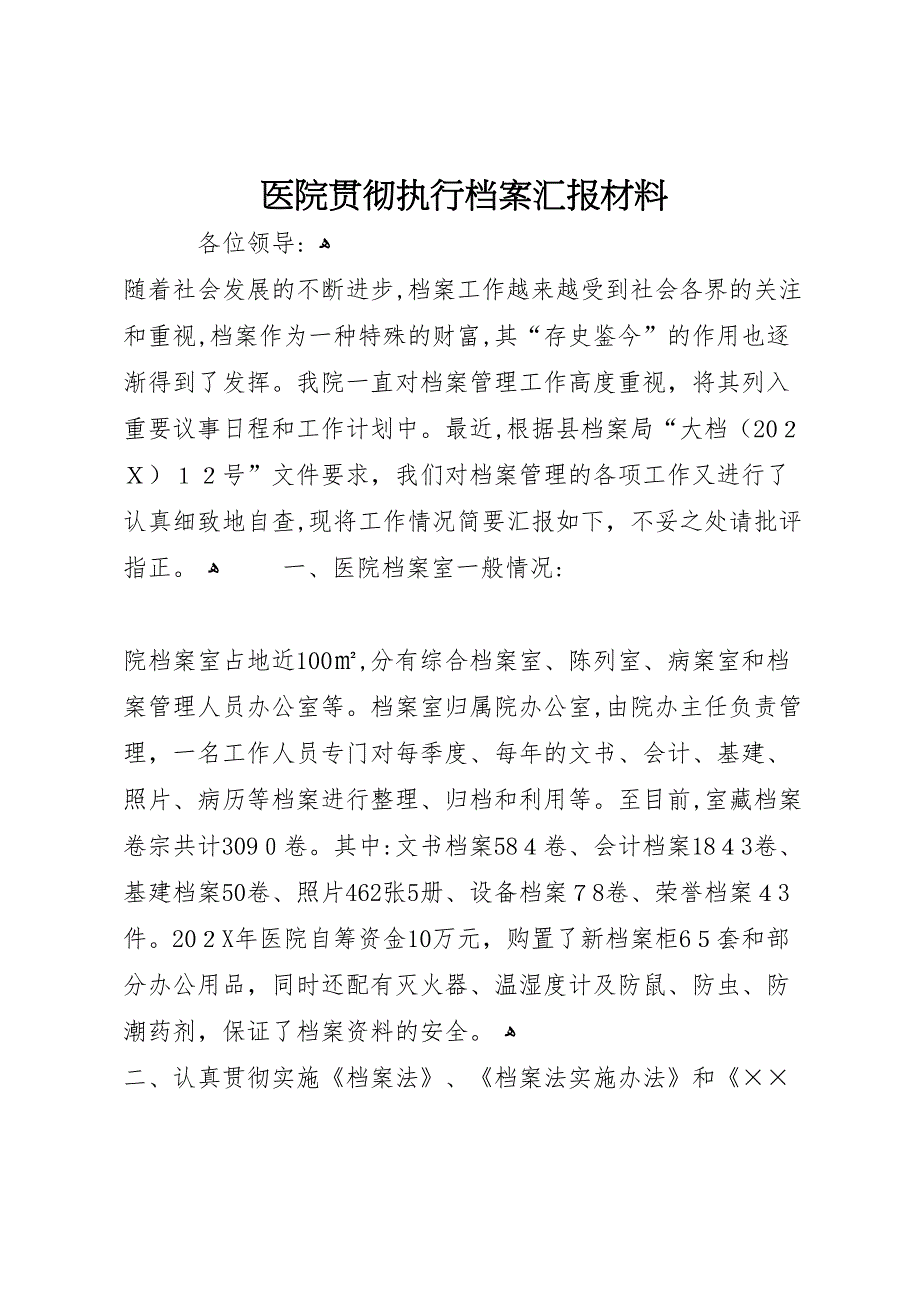 医院贯彻执行档案汇报材料
各位领导: ﻫ
随着社会发展的不断进步,档案工作越来越受到社会各界的关注
和重视,档案作为一种特殊的财富,其“存史鉴今”的作用也逐
渐得到了发挥。我院一直对档案管理工作高度重视，将其列入
重要议事日程和工作计划中。最近,根据县档案局“大档（20２
Ｘ）１２号”文件要求，我们对档案管理的各项工作又进行了
认真细致地自查,现将工作情况简要汇报如下，不妥之处请批评
指正。 ﻫ 一、医院档案室一般情况:
院档案室占地近100㎡,分有综合档案室、陈列室、病案室和档
案管理人员办公室等。档案室归属院办公室,由院办主任负责管
理，一名工作人员专门对每季度、每年的文书、会计、基建、
照片、病历等档案进行整理、归档和利用等。至目前,室藏档案
卷宗共计309０卷。其中:文书档案58４卷、会计档案18４3卷、
基建档案50卷、照片462张5册、设备档案７8卷、荣誉档案４3
件。20２X年医院自筹资金10万元，购置了新档案柜6５套和部
分办公用品，同时还配有灭火器、温湿度计及防鼠、防虫、防
潮药剂，保证了档案资料的安全。 ﻫ
二、认真贯彻实施《档案法》、《档案法实施办法》和《××